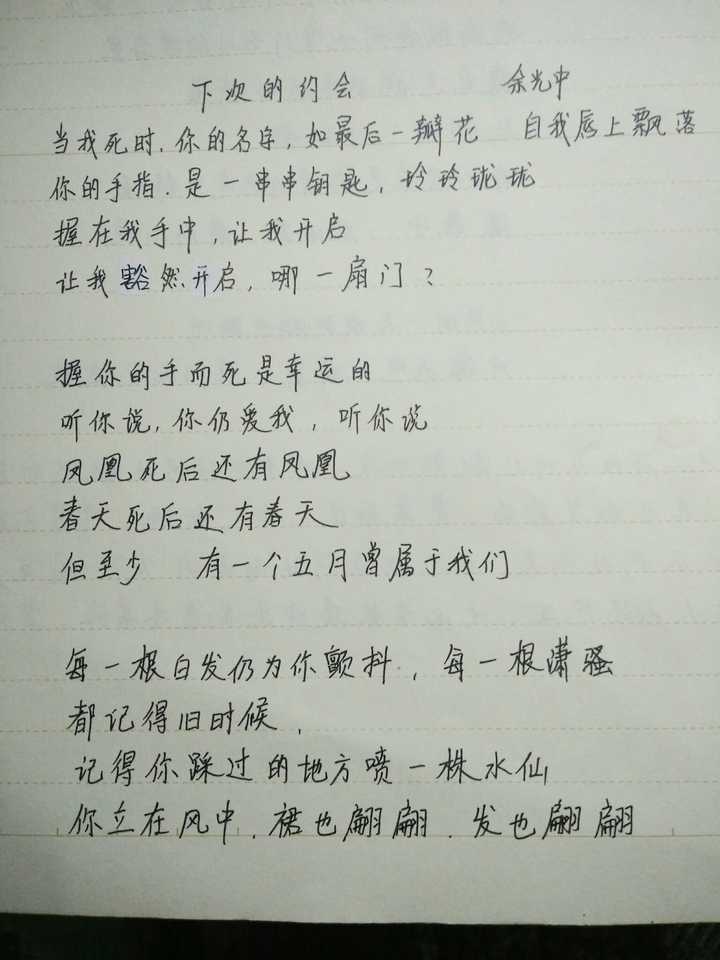 下次的约会 余光中
当我死时，你的名字，如最后一瓣花 自我唇上飘落
你的手指．是一串串钥匙，玲玲珑珑
握在我手中，让我开启
让我豁然开启，哪一扇门？
握你的手而死是幸运的
听你说，你仍爱我，听你说
凤凰死后还有凤凰
春天死后还有春天
但至少 有一个五月曾属于我们
每一根白发仍为你颤抖，每一根潇骚
都记得旧时候，
记得你踩过的地方喷一株水仙
你立在风中．裙也翩翩．发也翩翩